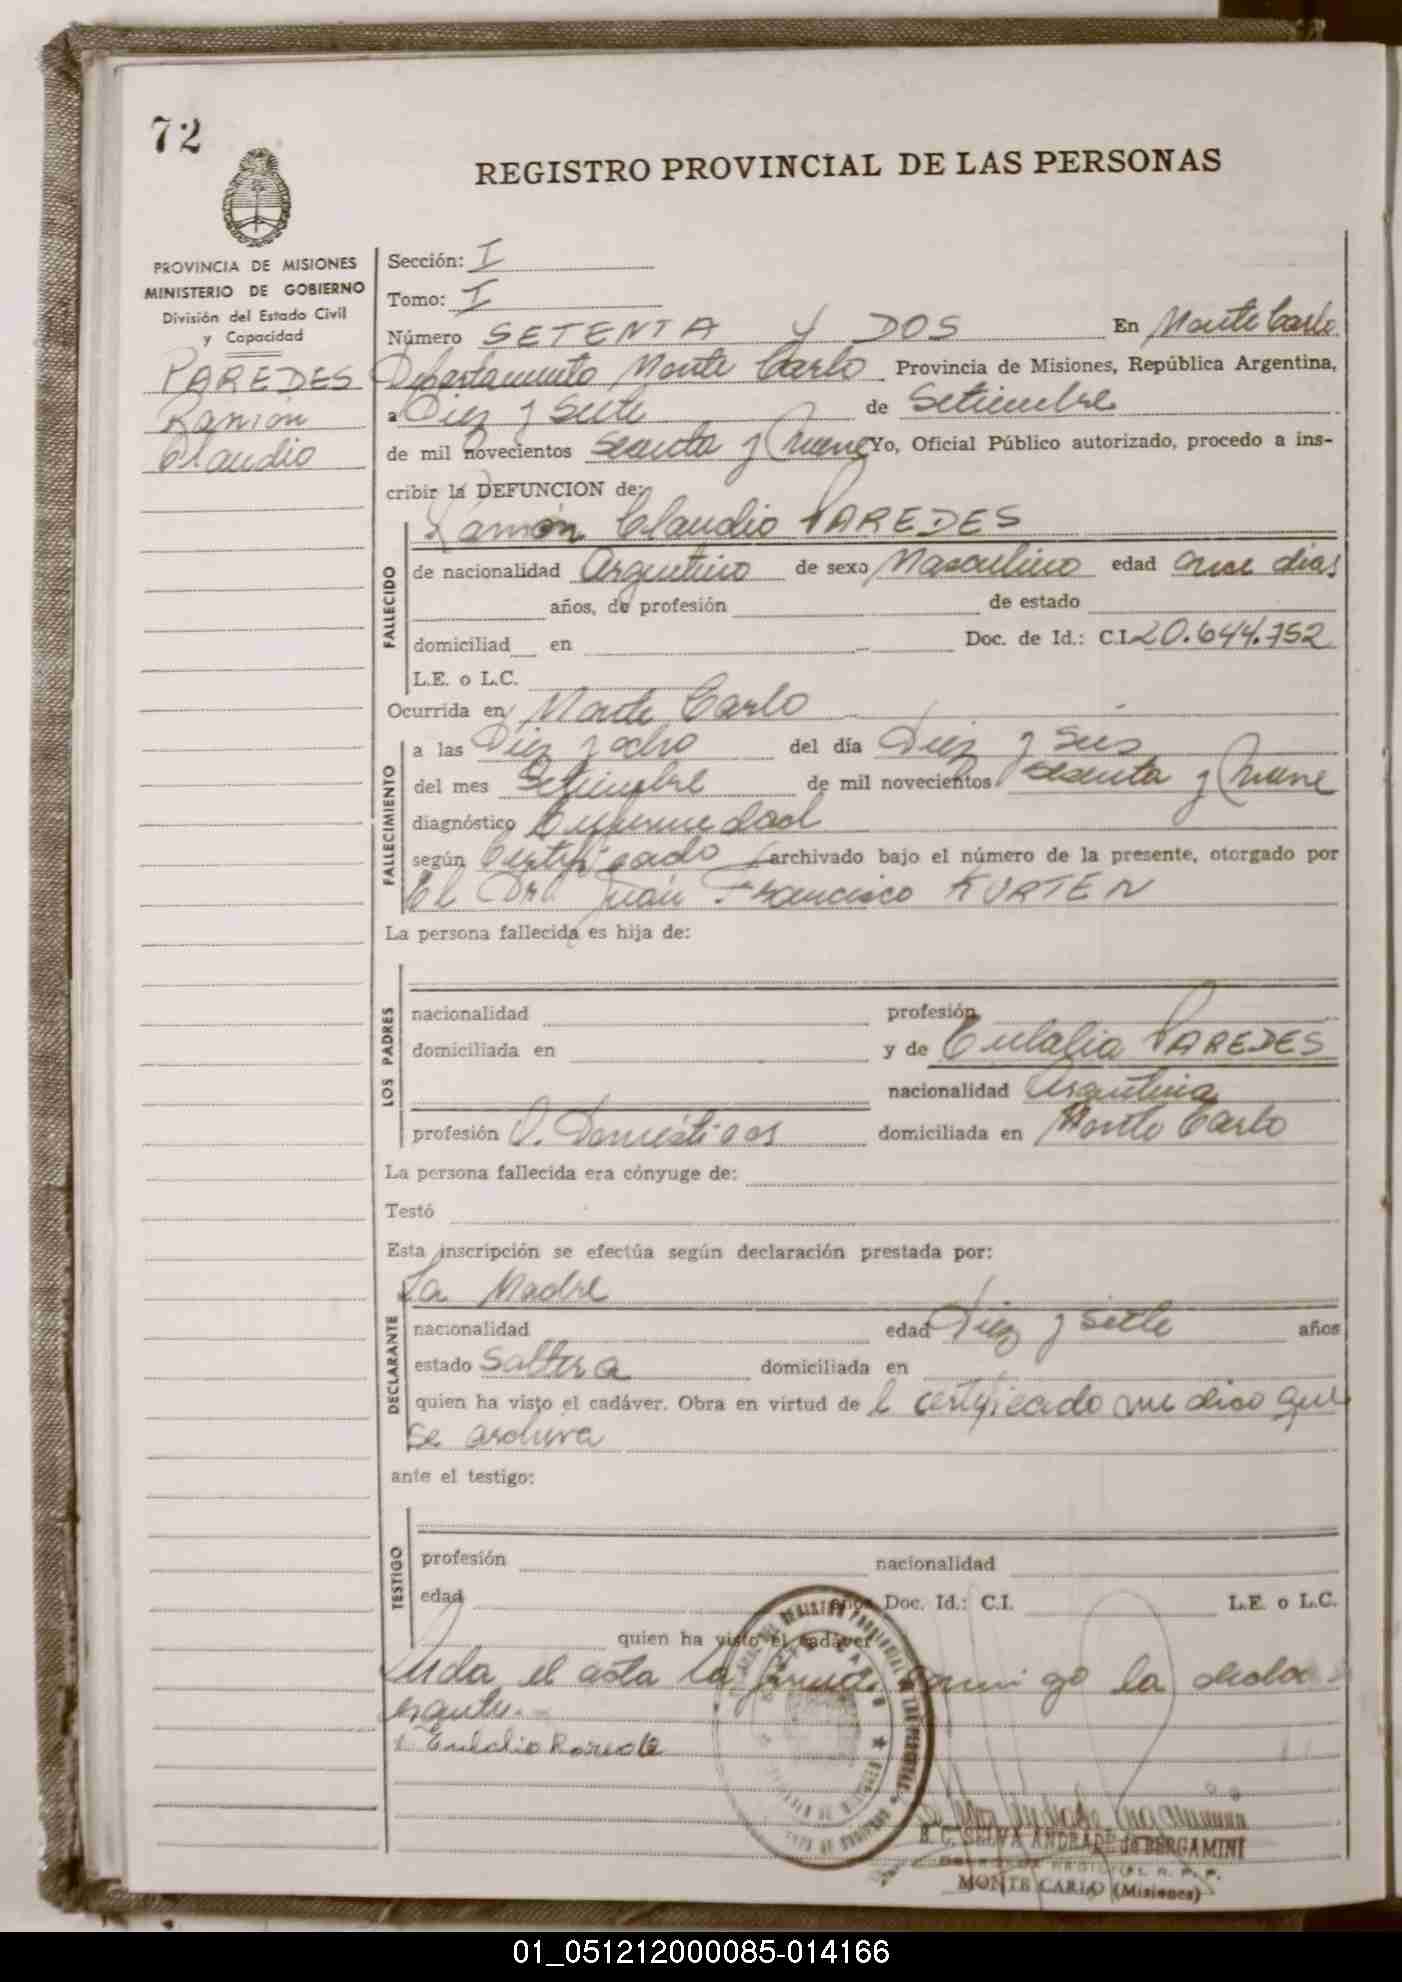 72
REGISTRO PROVINCIAL DE LAS PERSONAS
PROVINCIA DE MISIONES
MINISTERIO DE GOBIERNO
División del Estado Civil
y Capacidad
PAREDES
Ramón
Claudio
Sección: I
Tomo: I
Número SETENTA y DOS En Monte Carlo
Departamento Monte Carlo Provincia de Misiones, República Argentina,
a Diez y Siete de Setiembre
de mil novecientos sesenta y Nueve Yo, Oficial Público autorizado, procedo a ins-
cribir la DEFUNCION de:
Ramón Claudio PAREDES
FALLECIDO
de nacionalidad Argentino de sexo Masculino edad once dias
años, de profesión de estado
domiciliad en Doc. de Id.: C.I. 20.644.752
L.E. o L.C.
Ocurrida en Monte Carlo
FALLECIMIENTO
a las Diez y ocho del día Diez y Seis
del mes Setiembre de mil novecientos sesenta y Nueve
diagnóstico Enfermedad
según Certificado archivado bajo el número de la presente, otorgado por
El Dr. Juan Francisco KURTEN
La persona fallecida es hija de:
LOS PADRES
nacionalidad profesión
domiciliada en y de Eulalia PAREDES
nacionalidad Argentina
profesión Q. Domésticos domiciliada en Monte Carlo
La persona fallecida era cónyuge de:
Testó
Esta inscripción se efectúa según declaración prestada por:
La Madre
DECLARANTE
nacionalidad edad Diez y Siete años
estado Soltera domiciliada en
quien ha visto el cadáver. Obra en virtud de l certificado medico que
se archiva
ante el testigo:
TESTIGO
profesión nacionalidad
edad años Doc. Id.: C.I. L.E. o L.C.
quien ha visto el cadáver
Leida el acta la firma conmigo la decla-
rante.-
B. C. SELVA ANDRADE de BERGAMINI
MONTE CARLO (Misiones)
01_051212000085-014166